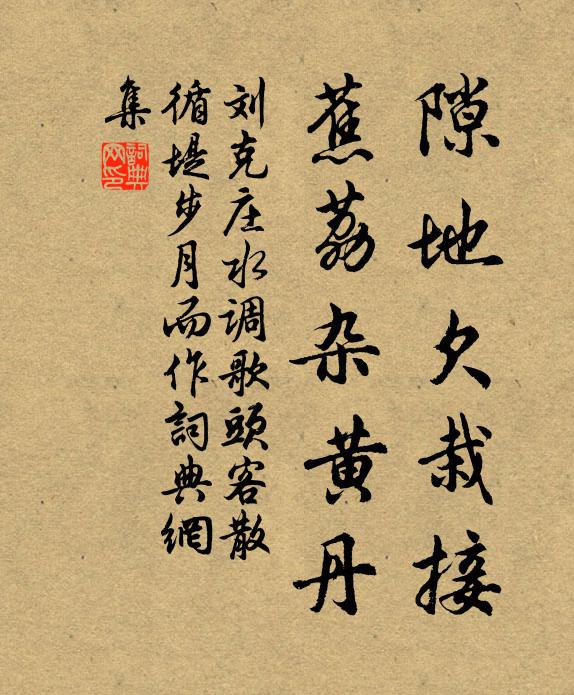 隙地欠栽接
蕉荔杂黄丹
刘克庄水调歌头客散
循堤步月而作詞典網
集
詞典網印